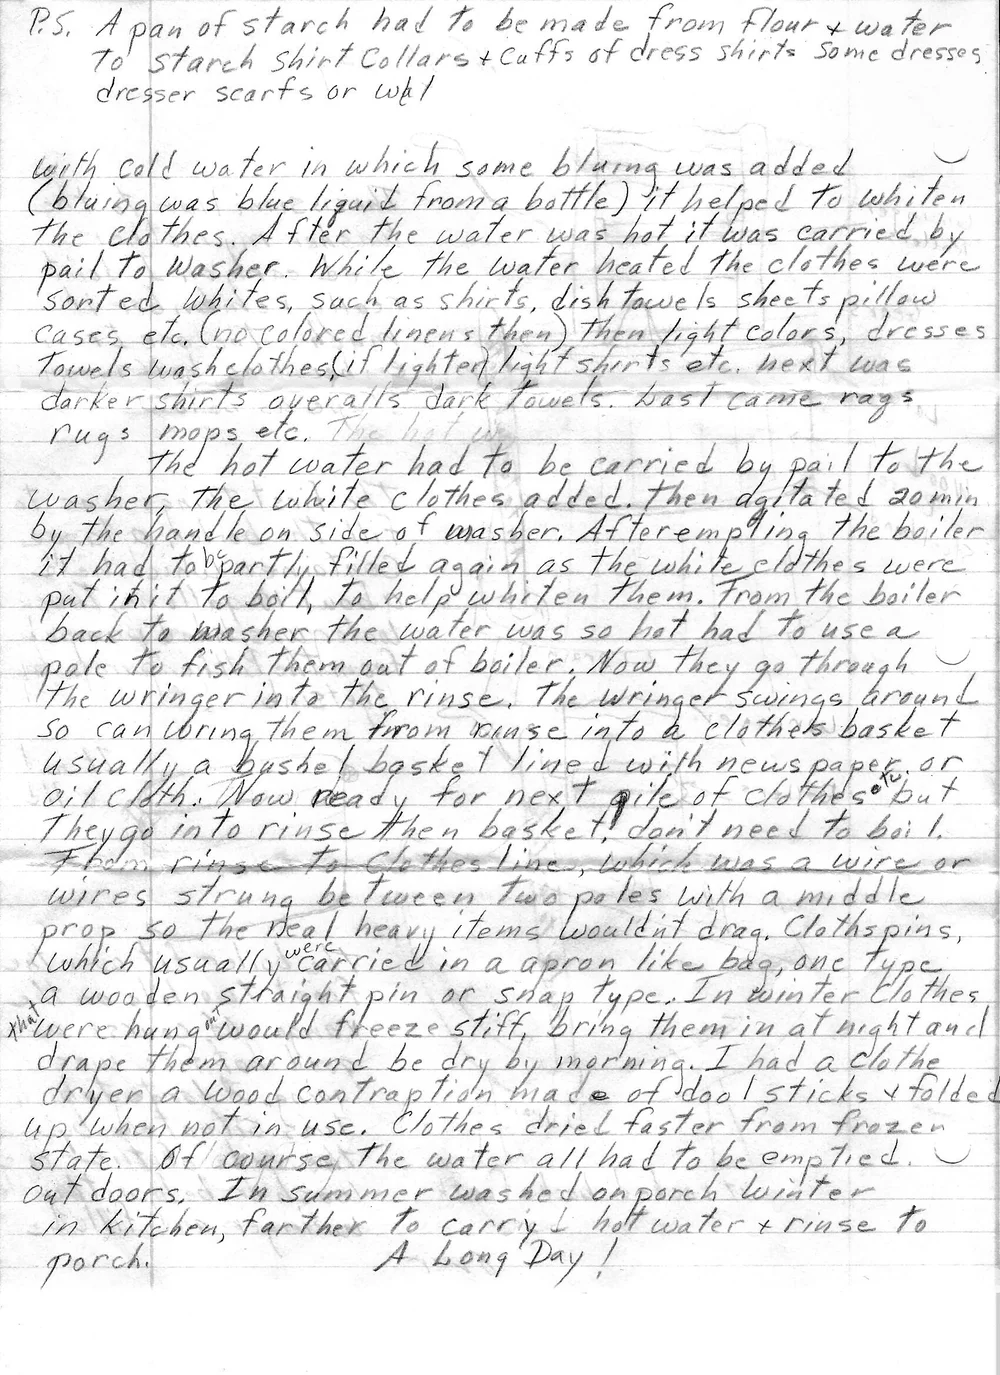 P.S. A pan of starch had to be made from flour + water
to starch shirt Collars + Cuffs of dress shirts Some dresses
dresser scarfs or
with cold water in which some bluing was added
(bluing was blue liquid from a bottle) it helped to whiten
the clothes. After the water was hot it was carried by
pail to washer. While the water heated the clothes were
sorted Whites, such as shirts, dish towels sheets pillow
cases etc. (no colored linens then) then light colors, dresses
Towels washclothes, (if lighter) light shirts etc. next was
darker shirts overalls dark towels. Last came rags
rugs mops etc. The hot w
The hot water had to be carried by pail to the
washer, the white clothes added. Then agitated 20 min
by the handle on side of washer. After empting the boiler
it had to be partly filled again as the white clothes were
put in it to boil, to help whiten them. From the boiler
back to washer the water was so hot had to use a
pole to fish them out of boiler. Now they go through
the wringer into the rinse. The wringer swings around
so can wring them from rinse into a clothes basket
usually a bushel basket lined with newspaper or
oil cloth. Now ready for next pile of clothes etc but
They go into rinse then basket, don't need to boil.
From rinse to Clothes line, which was a wire or
wires strung between two poles with a middle
prop so the real heavy items wouldn't drag. Clothspins,
which usually were carried in a apron like bag, one type
a wooden straight pin or snap type. In winter Clothes
that were hung out would freeze stiff, bring them in at night and
drape them around be dry by morning. I had a clothe
dryer a wood contraption made of dool sticks + folded
up when not in use. Clothes dried faster from frozen
state. Of course the water all had to be emptied.
out doors. In summer washed on porch Winter
in kitchen, farther to carry hot water + rinse to
porch. A Long Day!